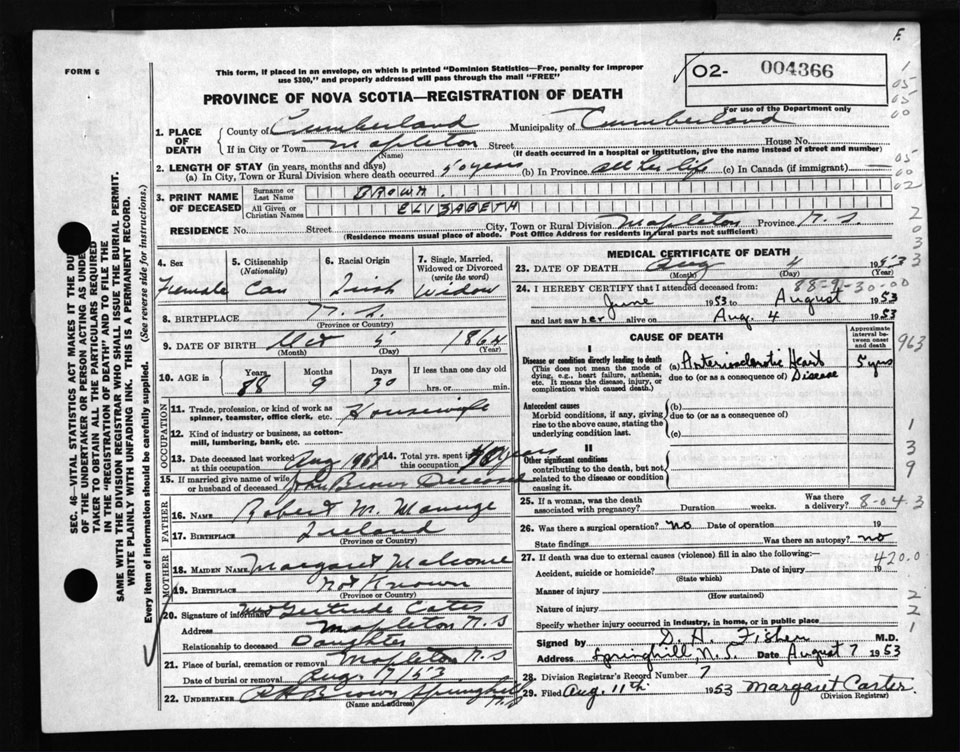 F.
FORM 6
This form, if placed in an envelope, on which is printed "Dominion Statistics—Free, penalty for improper
use $300," and properly addressed will pass through the mail "FREE"
O2- 004366
For use of the Department only
PROVINCE OF NOVA SCOTIA—REGISTRATION OF DEATH
1. PLACE OF DEATH
County of Cumberland Municipality of Cumberland
If in City or Town Mapleton Street House No.
(Name) (If death occurred in a hospital or institution, give the name instead of street and number)
2. LENGTH OF STAY (in years, months and days)
(a) In City, Town or Rural Division where death occurred 50 years (b) In Province all her life (c) In Canada (if immigrant) —
3. PRINT NAME OF DECEASED
Surname or Last Name BROWN.
All Given or Christian Names ELIZABETH
RESIDENCE No. Street City, Town or Rural Division Mapleton Province N. S.
(Residence means usual place of abode. Post Office Address for residents in rural parts not sufficient)
4. Sex Female
5. Citizenship (Nationality) Can
6. Racial Origin Irish
7. Single, Married, Widowed or Divorced (write the word) Widow
8. BIRTHPLACE N. S.
(Province or Country)
9. DATE OF BIRTH Oct 5 1864
(Month) (Day) (Year)
10. AGE in Years Months Days If less than one day old
88 9 30 hrs. or min.
OCCUPATION
11. Trade, profession, or kind of work as spinner, teamster, office clerk, etc. Housewife
12. Kind of industry or business, as cotton-mill, lumbering, bank, etc.
13. Date deceased last worked at this occupation Aug
14. Total yrs. spent in this occupation years
15. If married give name of wife or husband of deceased John Brown Deceased
FATHER
16. NAME Robert
17. BIRTHPLACE Ireland
(Province or Country)
MOTHER
18. MAIDEN NAME Margaret Malcome
19. BIRTHPLACE Not Known
(Province or Country)
20. Signature of informant Mrs Gertrude Cates
Address Mapleton N. S
Relationship to deceased Daughter
21. Place of burial, cremation or removal Mapleton N S
Date of burial or removal Aug. 7/53
22. UNDERTAKER R H Brown Springhill N S
(Name and address)
MEDICAL CERTIFICATE OF DEATH
23. DATE OF DEATH Aug 4 1953
(Month) (Day) (Year)
88-9-30-00
24. I HEREBY CERTIFY that I attended deceased from:
June 1953 to August 1953
and last saw her alive on Aug. 4 1953
CAUSE OF DEATH
Approximate interval between onset and death
I
Disease or condition directly leading to death
(This does not mean the mode of dying, e.g., heart failure, asthenia, etc. It means the disease, injury, or complication which caused death.)
(a) Arteriosclerotic Heart Disease 5 yrs
due to (or as a consequence of)
Antecedent causes
Morbid conditions, if any, giving rise to the above cause, stating the underlying condition last.
(b)
due to (or as a consequence of)
(c)
II
Other significant conditions
contributing to the death, but not related to the disease or condition causing it.
25. If a woman, was the death associated with pregnancy? Duration weeks. Was there a delivery?
8-04.3
26. Was there a surgical operation? No Date of operation 19
State findings Was there an autopsy? no
27. If death was due to external causes (violence) fill in also the following:—
420.0
Accident, suicide or homicide? Date of injury 19
(State which)
Manner of injury
(How sustained)
Nature of injury
Specify whether injury occurred in industry, in home, or in public place
Signed by D. H. Fisher M.D.
Address Springhill, N. S. Date August 7 1953
28. Division Registrar's Record No. 7
29. Filed Aug. 11th 1953 Margaret Carter.
(Division Registrar)
SEC. 46—VITAL STATISTICS ACT MAKES IT THE DUTY
OF THE UNDERTAKER OR PERSON ACTING AS UNDER-
TAKER TO OBTAIN ALL THE PARTICULARS REQUIRED
IN THE "REGISTRATION OF DEATH" AND TO FILE THE
SAME WITH THE DIVISION REGISTRAR WHO SHALL ISSUE THE BURIAL PERMIT.
WRITE PLAINLY WITH UNFADING INK. THIS IS A PERMANENT RECORD.
Every item of information should be carefully supplied. (See reverse side for instructions.)
1
05
05
00
05
00
02
2
0
3
3
963
1
3
9
2
2
1